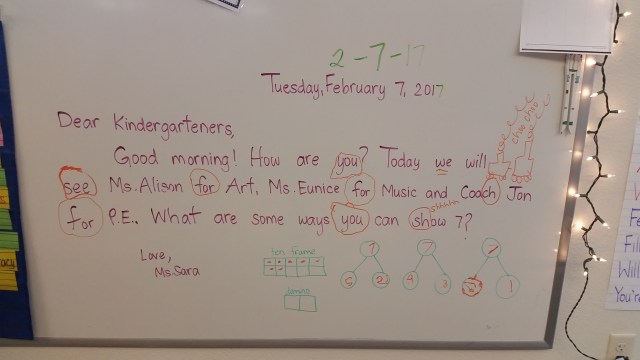 2-7-17
Tuesday, February 7, 2017
Dear Kindergarteners,
Good morning! How are you? Today we will
see Ms. Alison for Art, Ms. Eunice for Music and Coach Jon
for P.E.. What are some ways you can show 7?
shhhhh
choo choo
choo choo
Love,
Ms. Sara
ten frame
7
5 2
7
4 3
7
6 1